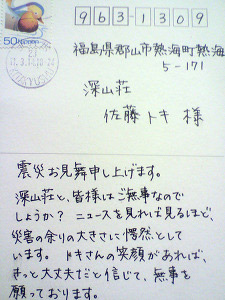 963-1309
50 NIPPON
福島県郡山市熱海町熱海
5-171
深山荘
佐藤トキ 様
震災お見舞申し上げます。
深山荘と、皆様はご無事なので
しょうか？ ニュースを見れば見るほど、
災害の余りの大きさに愕然として
います。 トキさんの笑顔があれば、
きっと大丈夫だと信じて、無事を
願っております。